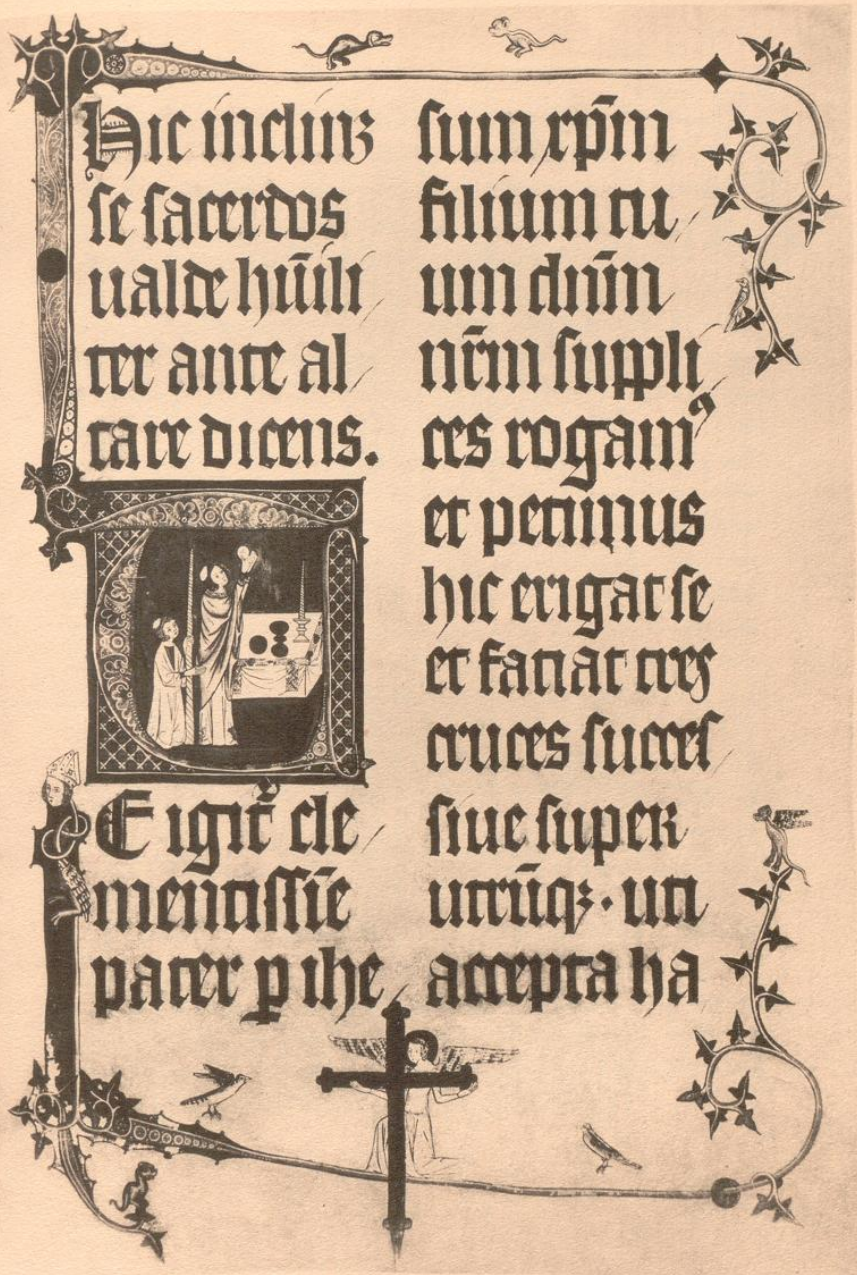 Hic inclinꝫ
se sacerdos
ualde hūili
ter ante al
tare dicens.
TE igit᷑ cle
mentissīe
pater ꝑ ihe
sum xp̄m
filium tu
um dn̄m
nr̄m suppli
ces rogamꝰ
et petimus
hic erigat se
et faciat tres
cruces succes
siue super
utrūqꝫ · uti
accepta ha